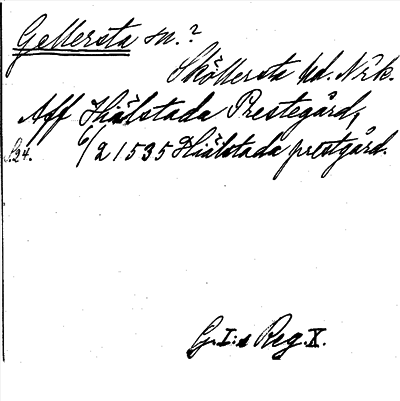 Gellersta sn.?
Sköllersta hd. Nrk.
Aff Hiälstada Prestegård,
S.24. 6/2 1535 Hiälstada prestgård.
G.I:s Reg. X.